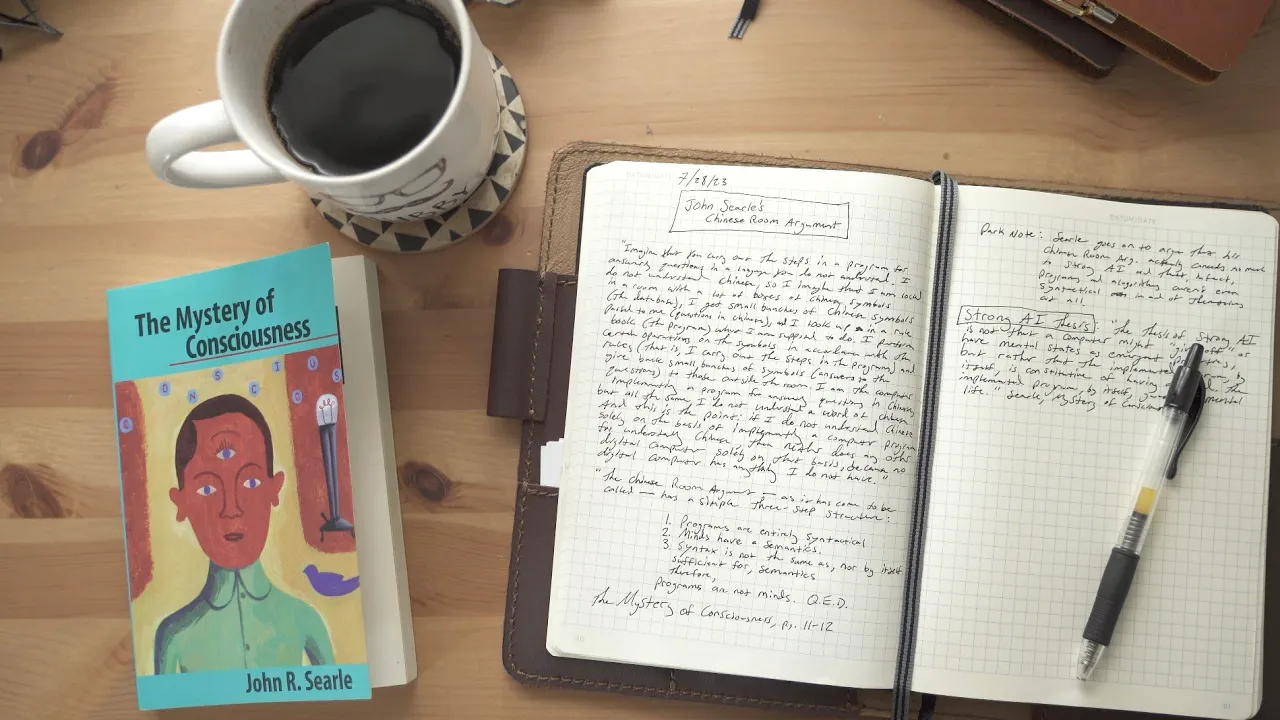 The Mystery of
Consciousness
C O N S C I O U S
John R. Searle
7/28/23
John Searle's
Chinese Room Argument
"Imagine that you carry out the steps in a program for
answering questions in a language you do not understand. I
do not understand Chinese, so I imagine that I am locked
in a room with a lot of boxes of Chinese symbols
(the database), I get small bunches of Chinese symbols
passed to me (questions in Chinese), and I look up in a rule
book (the program) what I am supposed to do. I perform
certain operations on the symbols in accordance with the
rules (that is, I carry out the steps in the program) and
give back small bunches of symbols (answers to the
questions) to those outside the room. I am the computer
implementing a program for answering questions in Chinese,
but all the same, I do not understand a word of Chinese.
And this is the point: if I do not understand Chinese
solely on the basis of implementing a computer program
for understanding Chinese, then neither does any other
digital computer solely on that basis, because no
digital computer has anything I do not have."
"The Chinese Room Argument — as it has come to be
called — has a simple three-step structure:
1. Programs are entirely syntactical
2. Minds have a semantics.
3. Syntax is not the same as, nor by itself
sufficient for, semantics
Therefore,
Programs are not minds. Q.E.D.
The Mystery of Consciousness, pg. 11-12
DATUM/DATE
Park Note: Searle goes on to argue that his
Chinese Room Arg. actually concedes too much
to Strong AI and that, in fact,
programs and algorithms aren't even
syntactical in and of themselves
at all.
Strong AI Thesis: "The thesis of Strong AI
is not that a computer might "give off" as
have mental states as emergent
but rather that the implemented program, by
itself, is constitutive of having
implemented program by itself, the mental
life." Searle Mystery of